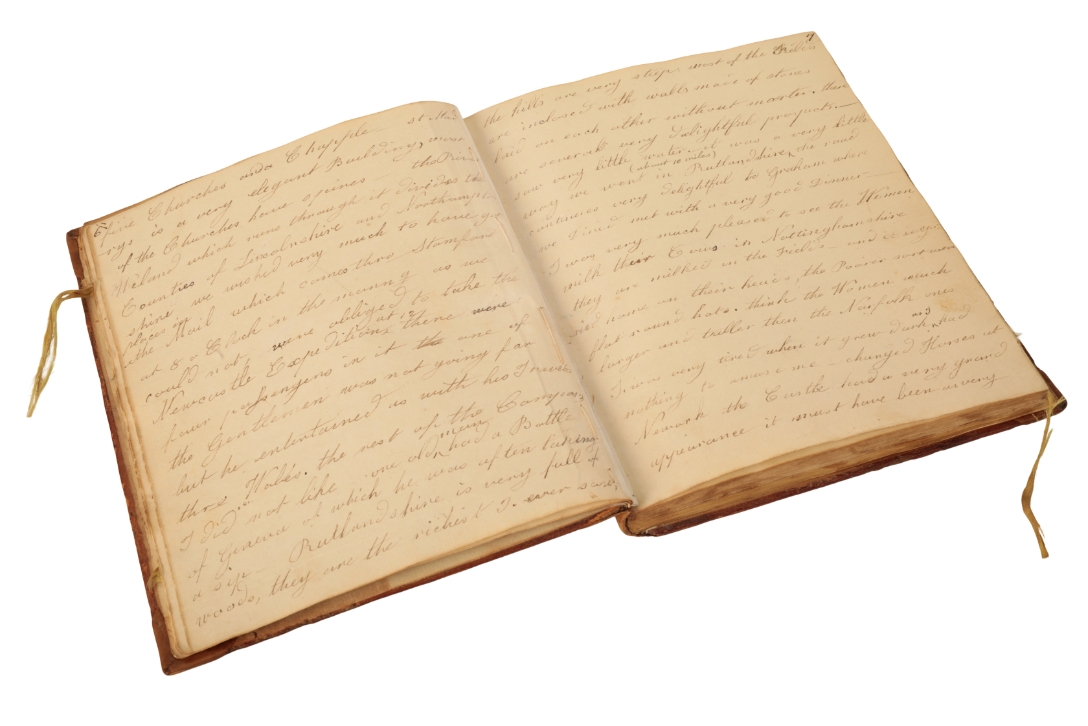 6
five Churches and Chapple St Mary
is a very elegant Building, most
of the Churches have spires the River
Weland which runs through it divides the
Counties of Lincolnshire and Northampton
shire we wished very much to have got
places in
the Mail which comes thro Stamford
at 8 o Clock in the morning as we
could not, were obliged to take the
Newcastle Expedition, there were
four passengers in it the one of
the Gentlemen was not going far
but he entertained us with his Travels
thro Wales. the rest of the Company
I did not like one old man had a Bottle
of Geneva of which he was often taking
a sip Rutlandshire is very full of
woods, they are the richest I ever saw,
9
the hills are very steep. most of the Fields
are inclosed with walls made of stones
laid on each other without morter. there
are several very delightful prospects.
saw very little water it was a very little
(about 10 miles)
way we went in Rutlandshire, the road
continues very delightful to Grantham where
we dined met with a very good Dinner
I was very much pleased to see the Women
with their Cows in Nottinghamshire
they are milked in the Fields and
on their heads, the Poorer
flat round hats. think the Women much
larger and taller than the Norfolk ones
I was very tired when it grew dark, as had
nothing to amuse me changed Horses at
Newark the Castle had a very grand
appearance it must have been a very